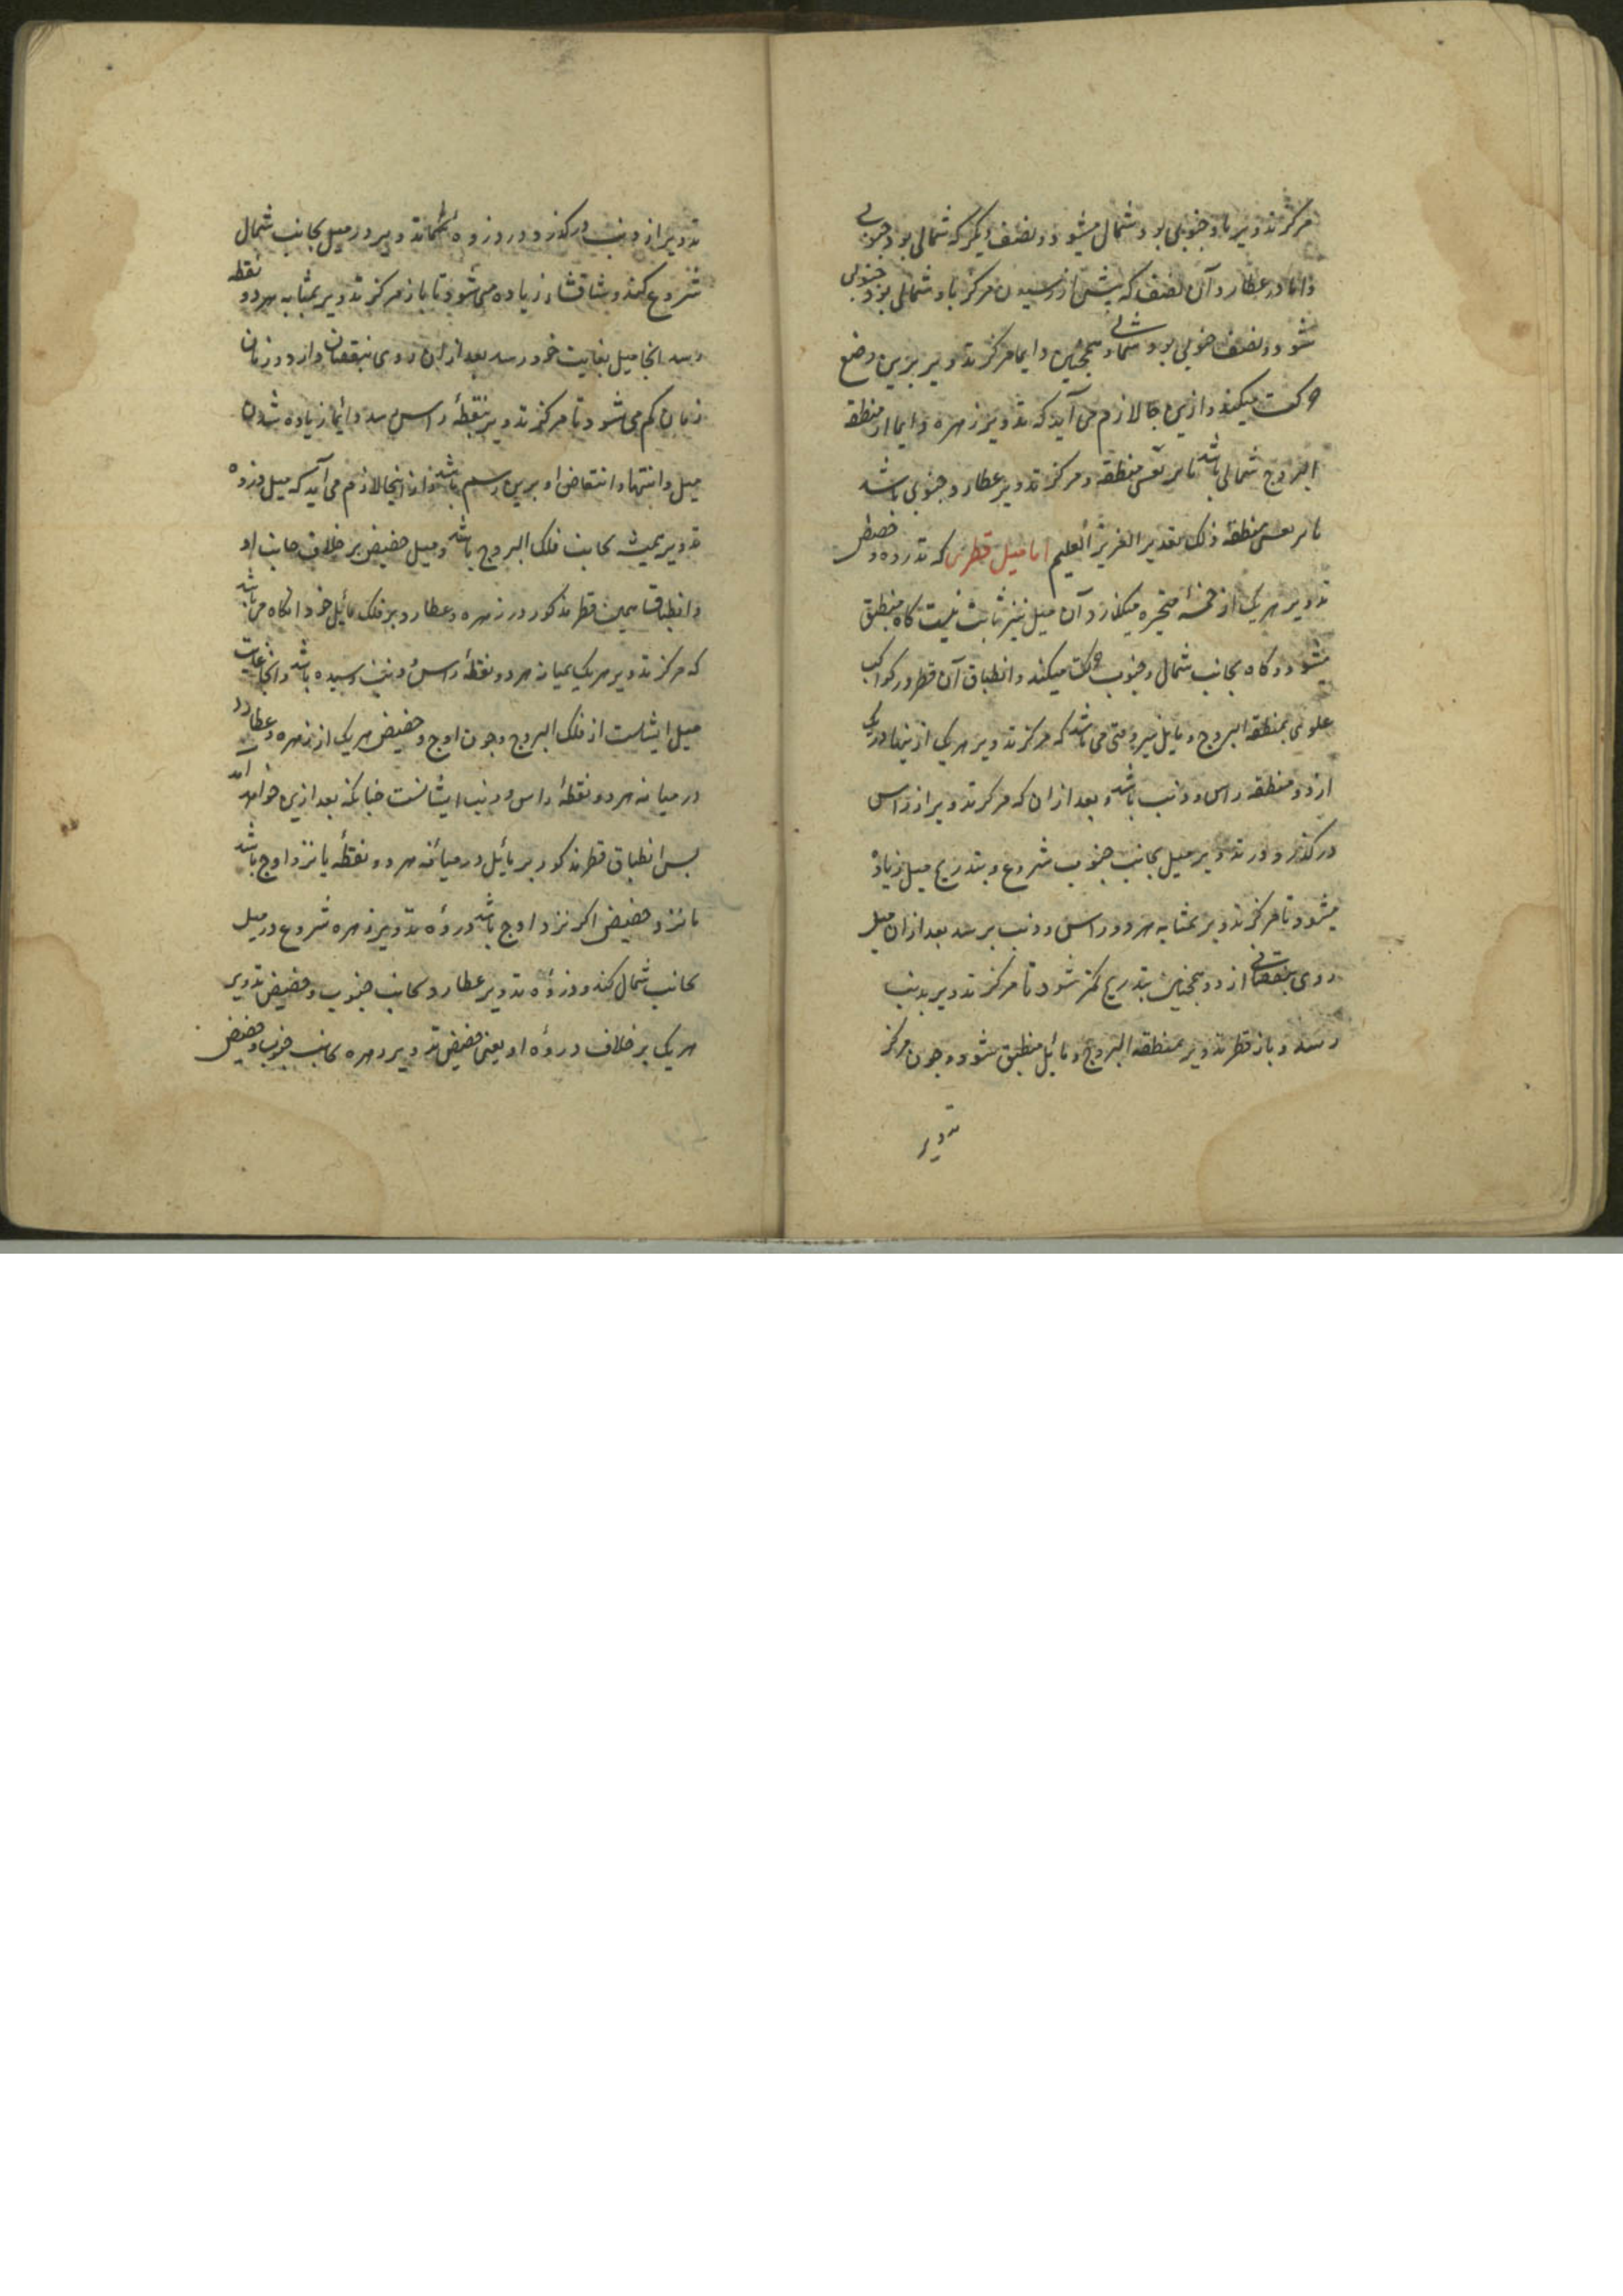 مرکز تدویر باو جنوبی بود شمال میشود و نصف دیگر که شمالی بود جنوبی
و اما در عطارد آن نصف که پیش از رسیدن مرکز باو شمالی بود جنوبی
شود و نصف جنوبی بود شمالی و همچنین دایما مرکز تدویر برین وضع
حرکت میکند و ازین جا لازم می آید که تدویر زهره دایما از منطقه
البروج شمالی باشد یا بر نفس منطقه و مرکز تدویر عطارد جنوبی باشد
یا بر نفس منطقه ذلک تقدیر العزیز العلیم اما میل قطری که بذروه و حضیض
تدویر هر یک از خمسهٔ متحیره میکذرد آن میل نیز ثابت نیست کاه منطبق
میشود و کاه بجانب شمال و جنوب حرکت میکند و انطباق آن قطر در کواکب
علوی بمنطقه البروج و مایل نیز وقتی می باشد که مرکز تدویر هر یک ازینها در یکی
از دو منطقه راس و ذنب باشد و بعد از ان که مرکز تدویر از راس
درکذرد و در تدویر میل بجانب جنوب شروع و بتدریج میل زیاده
میشود تا مرکز تدویر بمیانه هر دو راس و ذنب برسد بعد از ان میل
روی بنقصانی ازد و همچنین بتدریج کمتر شود تا مرکز تدویر بذنب
رسد و باز قطر تدویر بمنطقه البروج و مائل منطبق شود و چون مرکز
تدویر
تدویر از ذنب درکذرد و در ذروه تدویر در میل بجانب شمال
شروع کند و زیاده می شود تا باز مرکز تدویر بمیانه هر دو نقطه
رسد انجا میل بغایت خود رسد بعد از ان روی بنقصان و ازد و زمان
زمان کم می شود تا مرکز تدویر بنقطهٔ راس رسد و دائما زیاده شدن
میل و انتها و انتقاض او برین رسم باشد و از اینجا لازم می آید که میل ذروه
تدویر همیشه بجانب فلک البروج باشد و میل حضیض بر خلاف جانب او
و انطباق همین قطر مذکور در زهره و عطارد بر فلک مائل خود انکاه می باشد
که مرکز تدویر هر یک بمیانه هر دو نقطهٔ راس و ذنب رسیده باشد و انجا غایت
میل ایشانست از فلک البروج و چون اوج و حضیض هر یک از زهره و عطارد
در میانه هر دو نقطهٔ راس و ذنب ایشانست چنانکه بعد ازین خواهد آمد
پس انطباق قطر مذکور بر مائل در میانه هر دو نقطه یا نزد اوج باشد
یا نزد حضیض اکر نزد اوج باشد ذروهٔ تدویر زهره شروع در میل
بجانب شمال کند و ذروهٔ تدویر عطارد بجانب جنوب و حضیض تدویر
هر یک بر خلاف ذروهٔ او یعنی حضیض تدویر زهره بجانب جنوب و حضیض